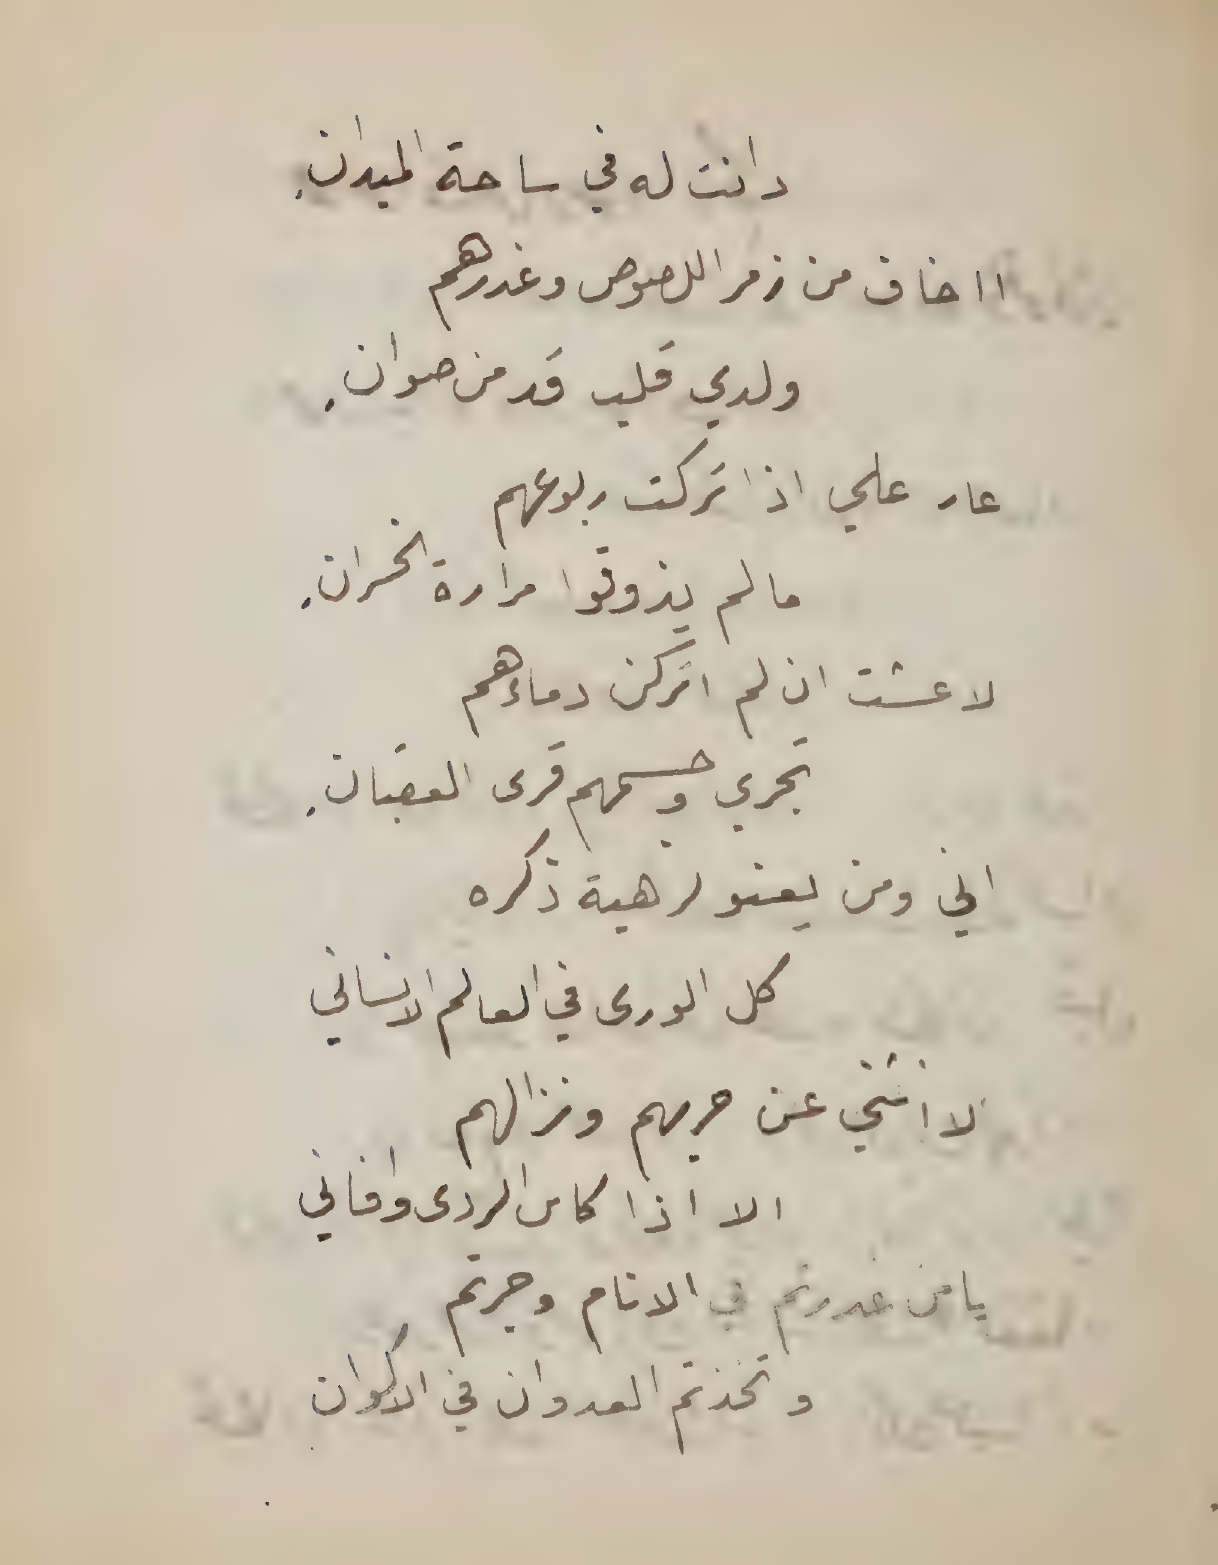 دانت له في ساحة الميدان.
ااخاف من زمر اللصوص وغدرهم
ولدي قلب قد من صوان.
عار علي اذا تركت ربوعهم
مالم يذوقوا مرارة الخسران.
لا عشت ان لم اتركن دماءهم
تجري وجسمهم قرى العقبان.
اني ومن يعنو لرهبة ذكره
كل الورى في العالم الانساني
لا انثني عن حربهم ونزالهم
الا اذا كاس الردى وافاني
يا من غدرتم في الانام وجرتم
وتخذتم العدوان في الاكوان